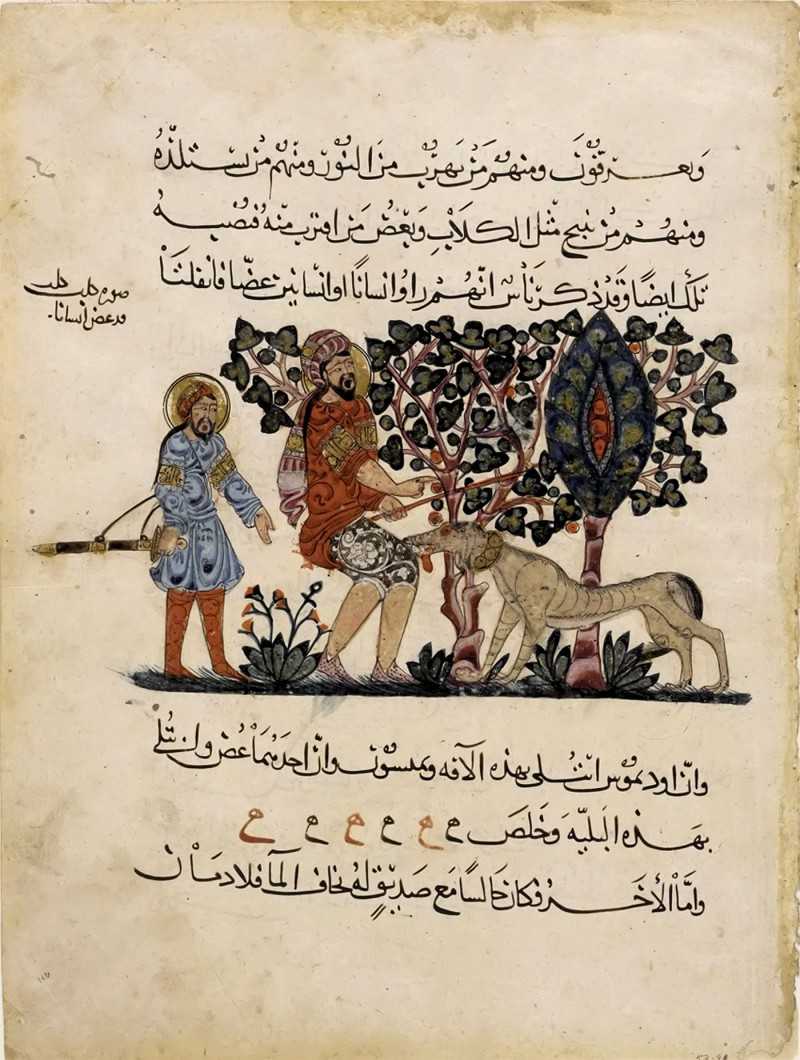 وَيعرقُونَ ومنهُم مَن يَهرُب مِنَ النور ومنهُم مَن يستلذّهُ
ومنهُم مَن ينبح مثل الكلاب وَيعَضُّ مَن اقترب منه فتصيبه
تلك ايضًا وَقد ذكر ناسٌ انّهُم راوُا انسانًا او انسانين عضّا فانفلتا
صوره كلب كلب
قد عض انسانا
وانّ اوديموس ابتُلى بهذه الآفه وثميسون وانّ احدهمَا عُض وابتُلى
بهَذه البليّه وَخلصَ
وَامّا الأخر فكان جالسًا مَع صَديق لهُ يخاف المآ فلا دمان